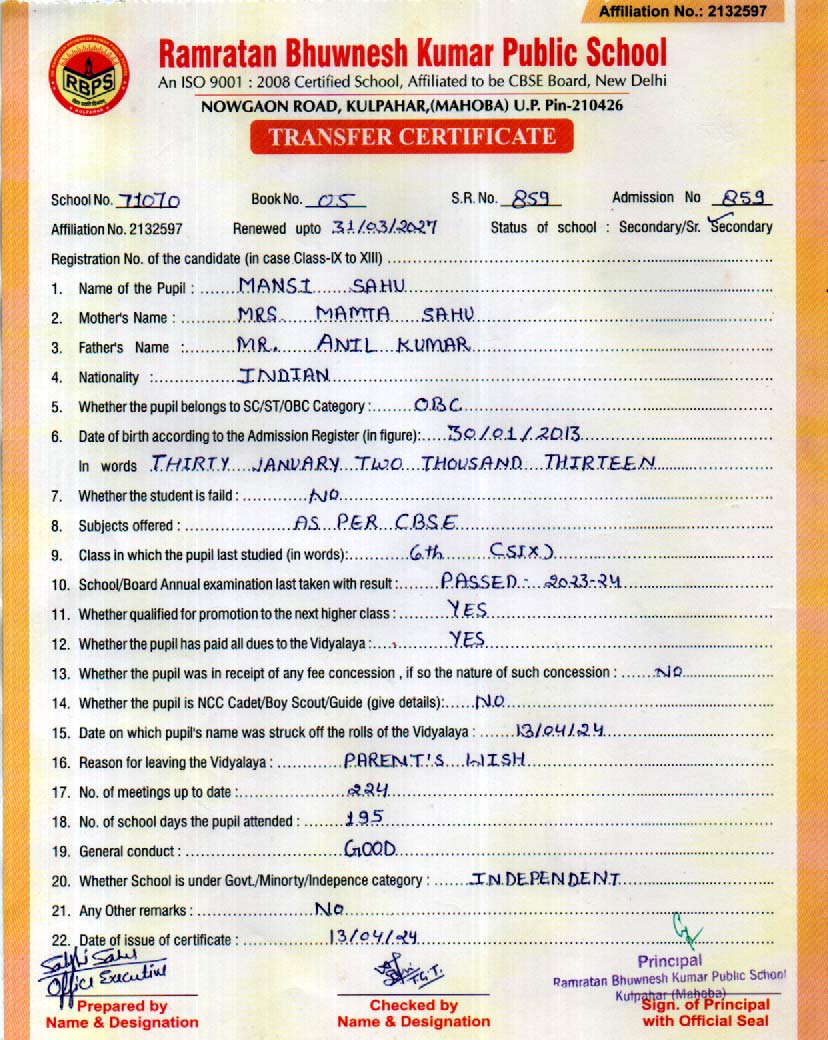 Affiliation No.: 2132597
RBPS
KULPAHAR
Ramratan Bhuwnesh Kumar Public School
An ISO 9001 : 2008 Certified School, Affiliated to be CBSE Board, New Delhi
NOWGAON ROAD, KULPAHAR,(MAHOBA) U.P. Pin-210426
TRANSFER CERTIFICATE
School No. 71070 Book No. 05 S.R. No. 859 Admission No 859
Affiliation No. 2132597 Renewed upto 31/03/2027 Status of school : Secondary/Sr. Secondary
Registration No. of the candidate (in case Class-IX to XIII)
1. Name of the Pupil : MANSI SAHU
2. Mother's Name : MRS. MAMTA SAHU
3. Father's Name : MR. ANIL KUMAR
4. Nationality : INDIAN
5. Whether the pupil belongs to SC/ST/OBC Category : OBC
6. Date of birth according to the Admission Register (in figure): 30/01/2013
In words THIRTY JANUARY TWO THOUSAND THIRTEEN
7. Whether the student is faild : NO
8. Subjects offered : AS PER CBSE
9. Class in which the pupil last studied (in words): 6th (SIX)
10. School/Board Annual examination last taken with result : PASSED - 2023-24
11. Whether qualified for promotion to the next higher class : YES
12. Whether the pupil has paid all dues to the Vidyalaya : YES
13. Whether the pupil was in receipt of any fee concession , if so the nature of such concession : NO
14. Whether the pupil is NCC Cadet/Boy Scout/Guide (give details): NO
15. Date on which pupil's name was struck off the rolls of the Vidyalaya : 13/04/24
16. Reason for leaving the Vidyalaya : PARENT'S WISH
17. No. of meetings up to date : 224
18. No. of school days the pupil attended : 195
19. General conduct : GOOD
20. Whether School is under Govt./Minorty/Indepence category : INDEPENDENT
21. Any Other remarks : NO
22. Date of issue of certificate : 13/04/24
Sahu
Office Executive
T.G.T.
Principal
Ramratan Bhuwnesh Kumar Public School
Kulpahar (Mahoba)
Prepared by
Name & Designation
Checked by
Name & Designation
Sign. of Principal
with Official Seal